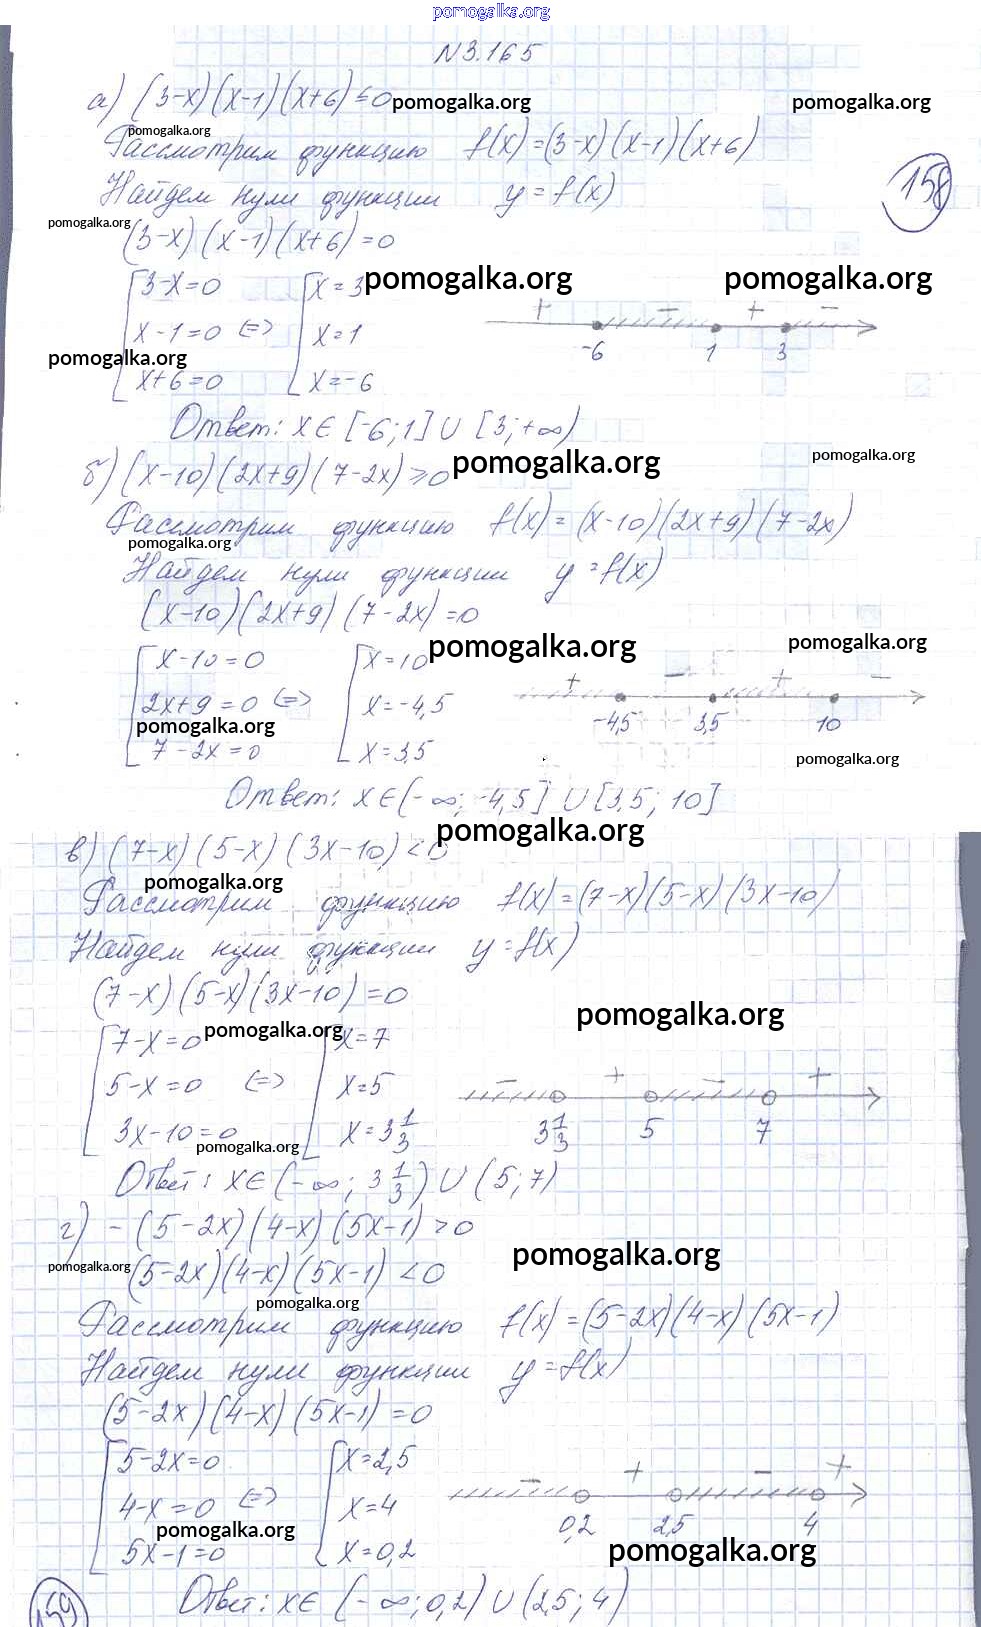 pomogalka.org
N 3.165
а) (3-x)(x-1)(x+6) ≤ 0 pomogalka.org pomogalka.org
pomogalka.org
Рассмотрим функцию f(x)=(3-x)(x-1)(x+6)
158
Найдем нули функции y=f(x)
pomogalka.org
(3-x)(x-1)(x+6)=0
3-x=0 x=3 pomogalka.org pomogalka.org
x-1=0 <=> x=1 + - + -
pomogalka.org -6 1 3
x+6=0 x=-6
Ответ: x∈[-6;1]∪[3;+∞)
б) (x-10)(2x+9)(7-2x)≥0 pomogalka.org pomogalka.org
Рассмотрим функцию f(x)=(x-10)(2x+9)(7-2x)
pomogalka.org
Найдем нули функции y=f(x)
(x-10)(2x+9)(7-2x)=0
pomogalka.org pomogalka.org
x-10=0 x=10
2x+9=0 <=> x=-4,5 + - + -
pomogalka.org -4,5 3,5 10
7-2x=0 x=3,5 pomogalka.org
Ответ: x∈(-∞;-4,5]∪[3,5;10]
pomogalka.org
в) (7-x)(5-x)(3x-10)<0
pomogalka.org
Рассмотрим функцию f(x)=(7-x)(5-x)(3x-10)
Найдем нули функции y=f(x)
(7-x)(5-x)(3x-10)=0
pomogalka.org
7-x=0 pomogalka.org x=7
5-x=0 <=> x=5 - + - +
3x-10=0 x=3 1/3 3 1/3 5 7
pomogalka.org
Ответ: x∈(-∞; 3 1/3)∪(5;7)
г) -(5-2x)(4-x)(5x-1)>0
pomogalka.org
pomogalka.org (5-2x)(4-x)(5x-1)<0
pomogalka.org
Рассмотрим функцию f(x)=(5-2x)(4-x)(5x-1)
Найдем нули функции y=f(x)
(5-2x)(4-x)(5x-1)=0
5-2x=0 x=2,5
4-x=0 <=> x=4 - + - +
pomogalka.org 0,2 2,5 4
5x-1=0 x=0,2 pomogalka.org
Ответ: x∈(-∞;0,2)∪(2,5;4)
159